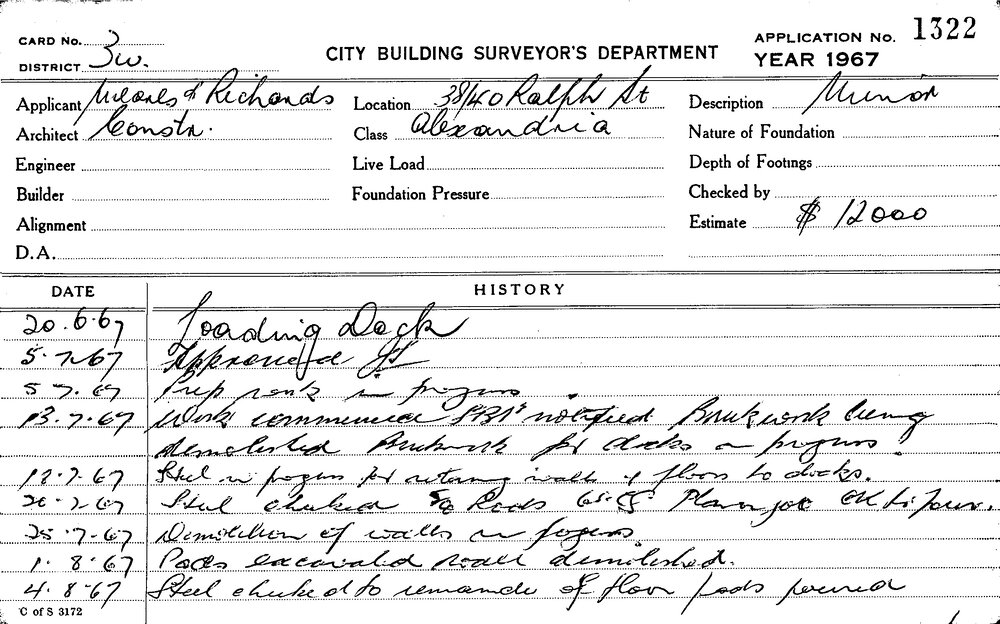 CARD No. 3
DISTRICT 3w.
CITY BUILDING SURVEYOR'S DEPARTMENT
APPLICATION No. 1322
YEAR 1967
Applicant & Richards
Architect Constr.
Engineer
Builder
Alignment
D.A.
Location 38/40 Ralph St
Class Alexandria
Live Load
Foundation Pressure
Description Minor
Nature of Foundation
Depth of Footings
Checked by
Estimate $ 12000
DATE HISTORY
20.6.67 Loading Dock
5.7.67 Approved
5.7.67 Prep work in progress
13.7.67 Work commenced notified Brickwork being
demolished Brickwork for docks in progress.
Steel in progress for retaining walls & floors to docks.
Steel checked Plan OK to pour.
25.7.67 Demolition of walls in progress.
1.8.67 Pads excavated wall demolished.
4.8.67 Steel checked to remainder of floor pads poured
C of S 3172